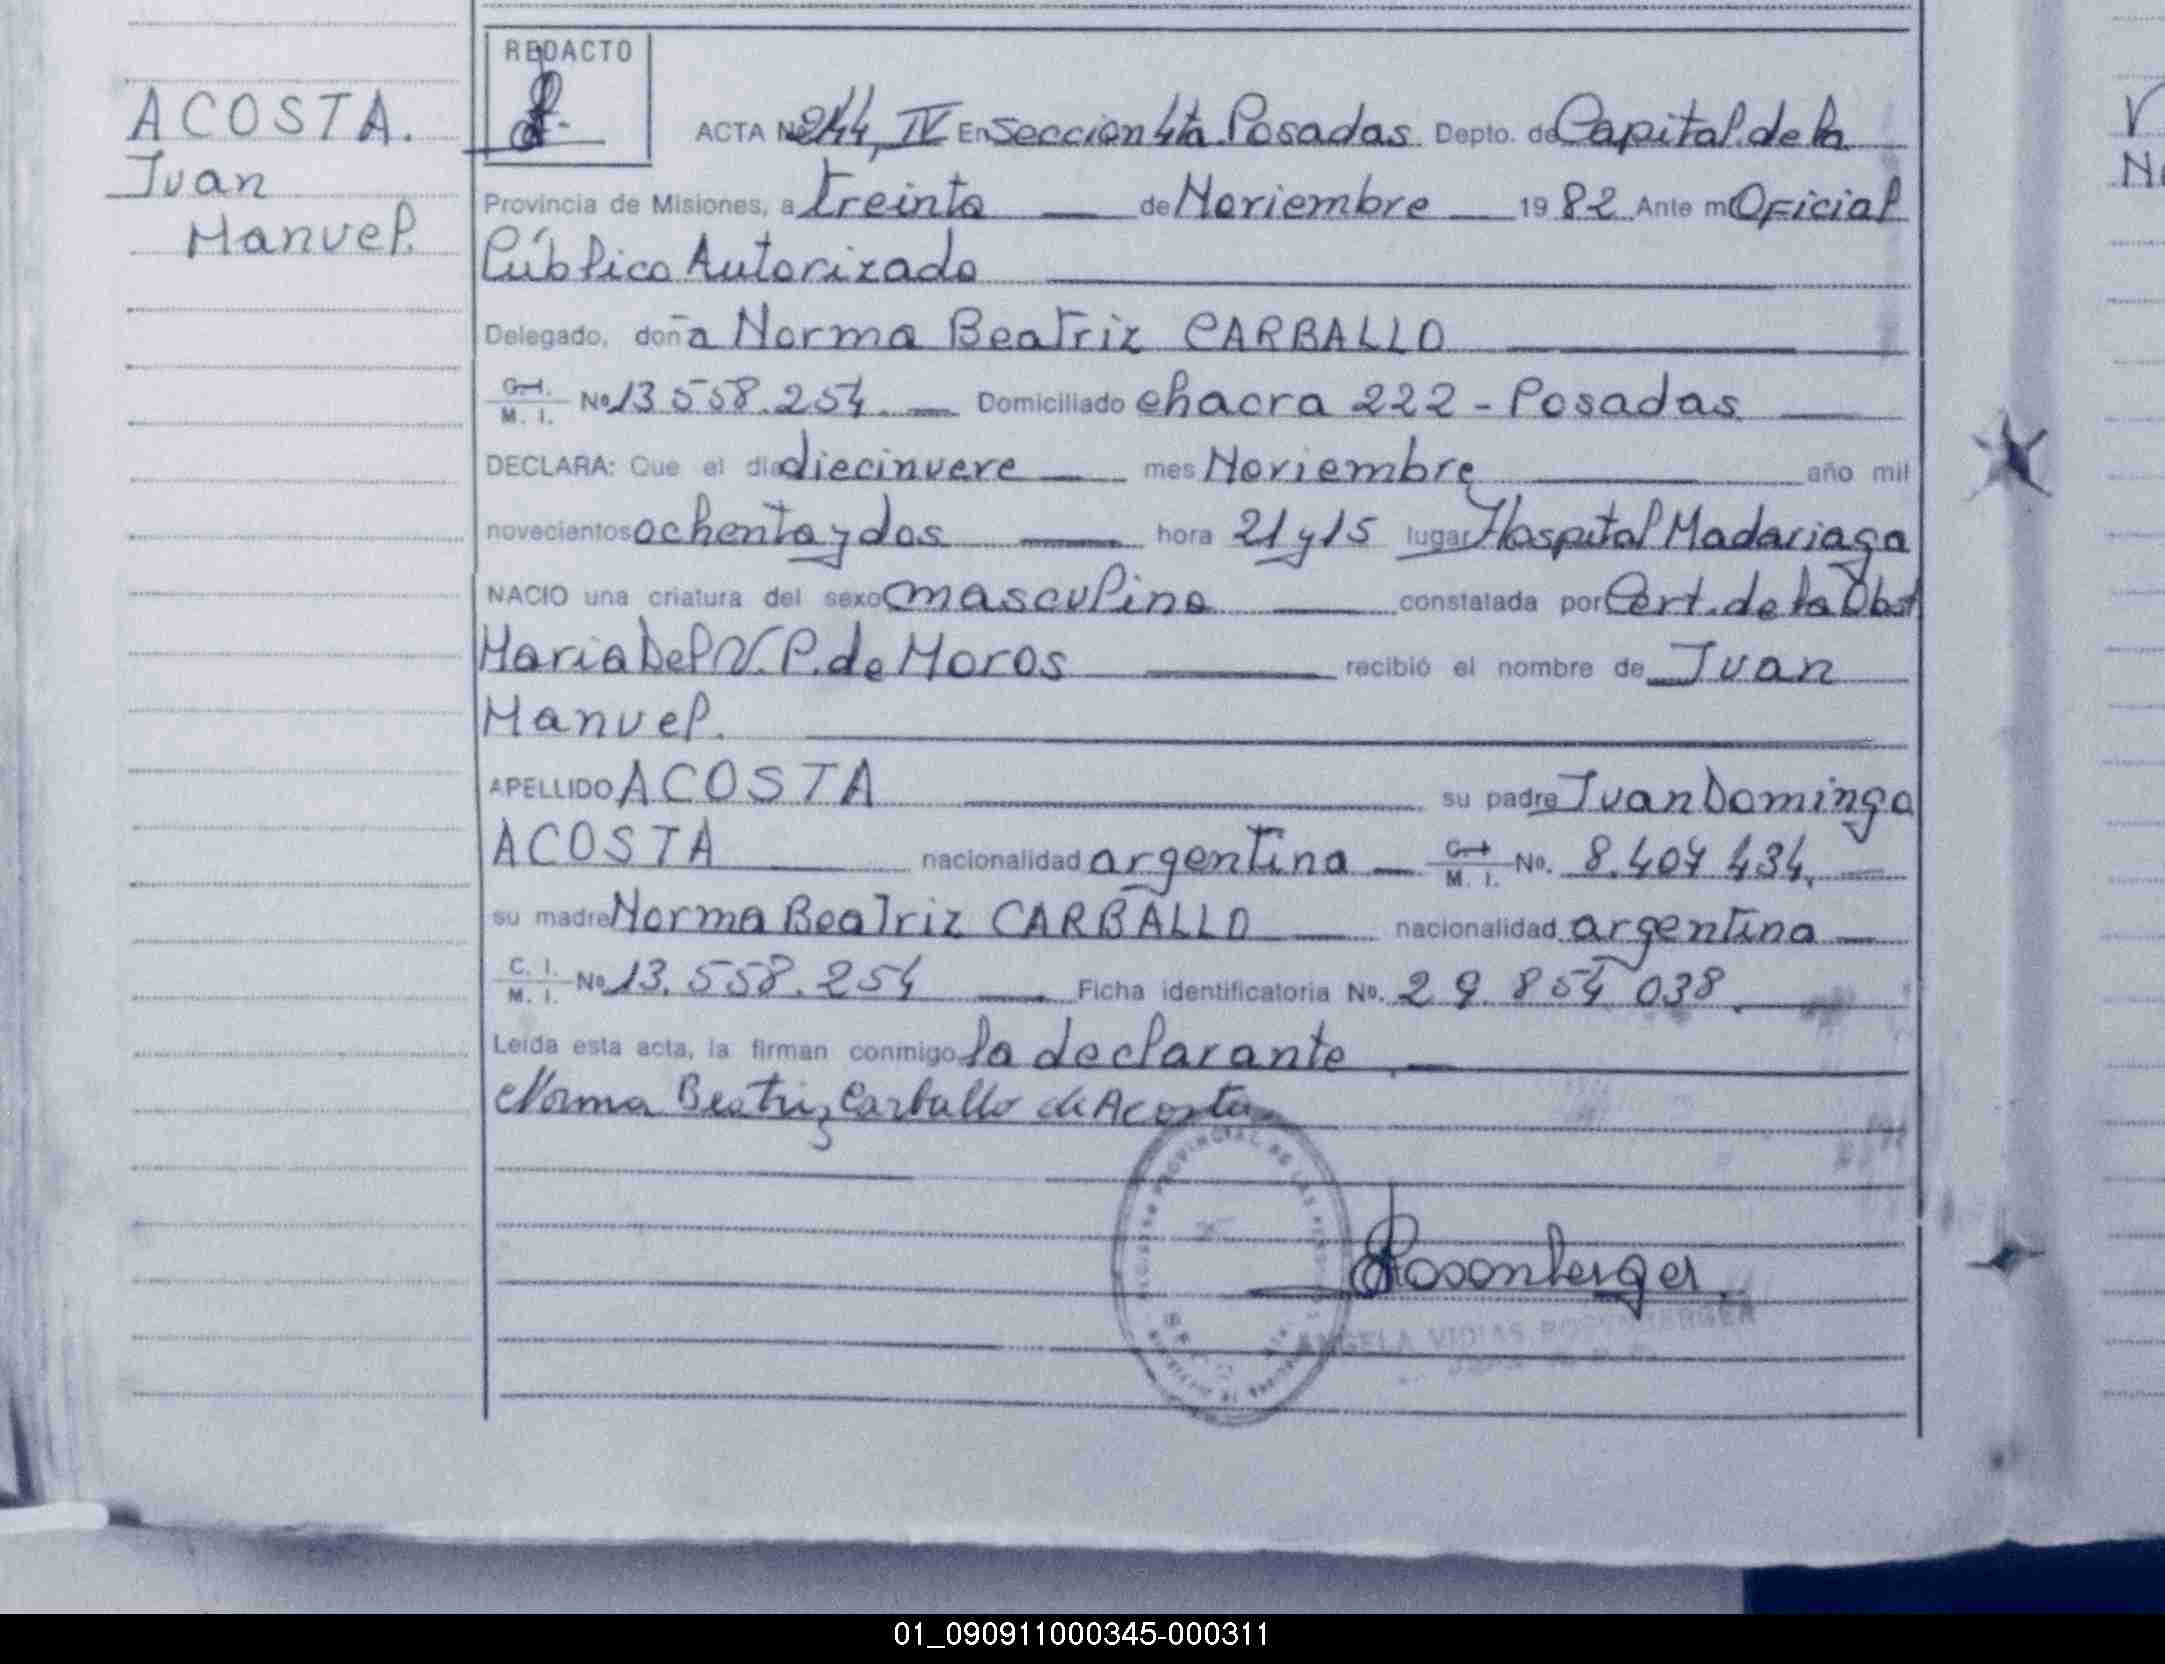 ACOSTA.
Juan
Manuel.
REDACTO
ACTA Nº 244, IV En Sección 4ta Posadas Depto. de Capital de la
Provincia de Misiones, a treinta de Noviembre 1982 Ante mí Oficial
Público Autorizado
Delegado, doña Norma Beatriz CARBALLO
C. I.
M. I. Nº 13.558.254. Domiciliado chacra 222 - Posadas
DECLARA: Que el día diecinueve mes Noviembre año mil
novecientos ochenta y dos hora 21 y 15 lugar Hospital Madariaga
NACIO una criatura del sexo masculino constatada por Cert. de la Obst
Maria Del V. P. de Moros recibió el nombre de Juan
Manuel.
APELLIDO ACOSTA su padre Juan Domingo
ACOSTA nacionalidad argentina C. I. M. I. No. 8.407.434.
su madre Norma Beatriz CARBALLO nacionalidad argentina
C. I.
M. I. Nº 13.558.254 Ficha identificatoria No. 29.854.038.
Leída esta acta, la firman conmigo la declarante.
Norma Beatriz Carballo de Acosta
Rosenberger
ANGELA VIDIAS ROSENBERGER
01_090911000345-000311